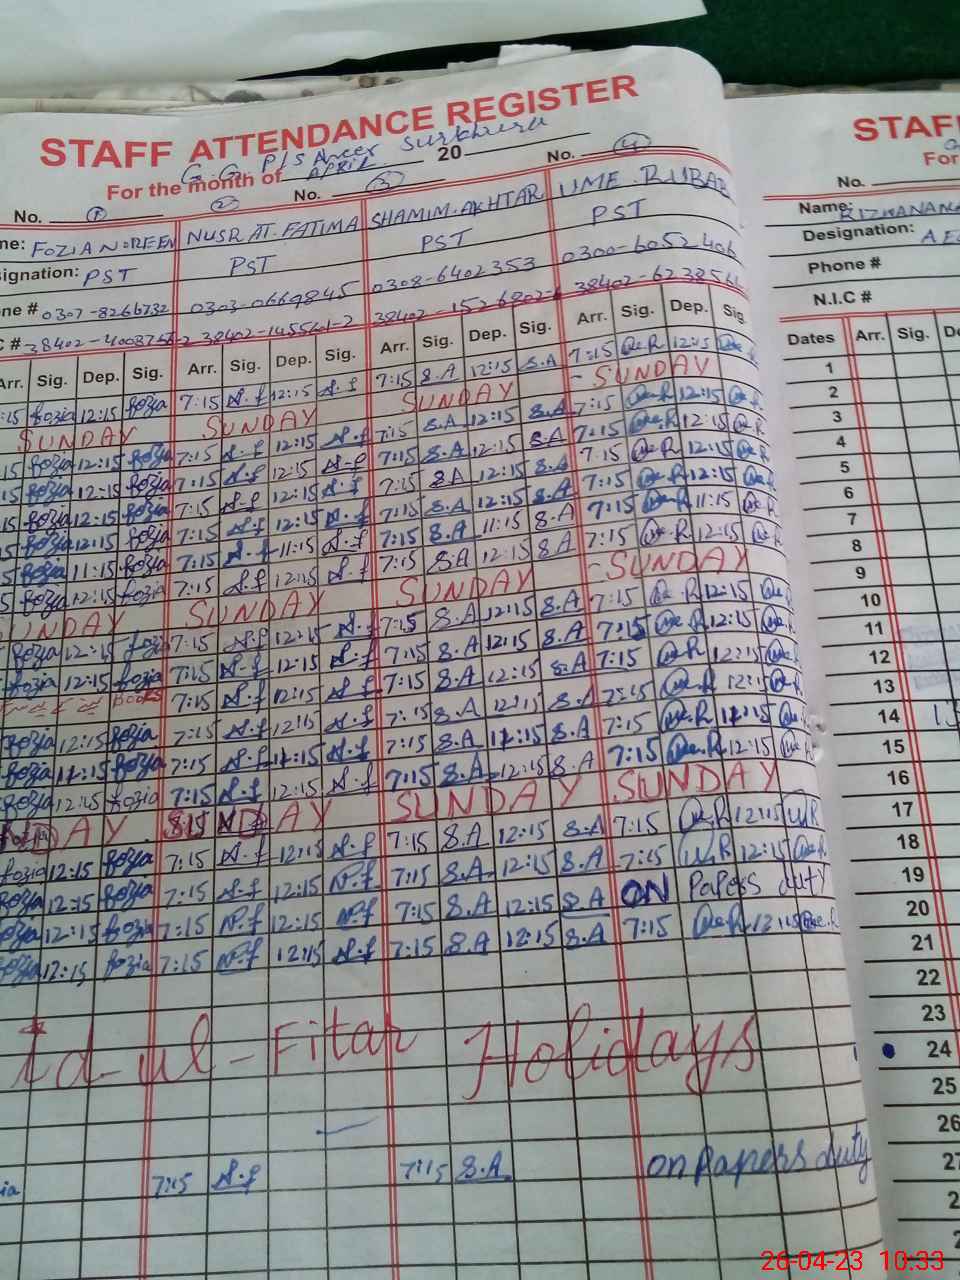 STAFF ATTENDANCE REGISTER
G.G. P/S Ameer Surkhuru
For the month of APRIL 20
No. 1 2 No. 3 No. 4
FOZIA NOREEN NUSRAT FATIMA SHAMIM AKHTAR UME RUBAB
signation: PST PST PST PST
ne # 0307-8266732 0303-0669845 0308-6402353 0300-6052406
Arr. Sig. Dep. Sig. Arr. Sig. Dep. Sig. Arr. Sig. Dep. Sig. Arr. Sig. Dep. Sig.
:15 fozia 12:15 fozia 7:15 N.f 12:15 N.f 7:15 S.A 12:15 S.A 7:15 Ume.R 12:15
SUNDAY SUNDAY SUNDAY - SUNDAY
15 fozia 12:15 fozia 7:15 N.f 12:15 N.f 7:15 S.A 12:15 S.A 7:15 Ume.R 12:15 Ume.R
15 fozia 12:15 fozia 7:15 N.f 12:15 N.f 7:15 S.A 12:15 S.A 7:15 Ume.R 12:15 Ume.R
15 fozia 12:15 fozia 7:15 N.f 12:15 N.f 7:15 S.A 12:15 S.A 7:15 Ume.R 12:15 Ume.R
15 fozia 12:15 fozia 7:15 N.f 12:15 N.f 7:15 S.A 12:15 S.A 7:15 Ume.R 12:15 Ume.R
5 fozia 11:15 fozia 7:15 N.f 11:15 N.f 7:15 S.A 11:15 S.A 7:15 Ume.R 11:15 Ume.R
5 fozia 12:15 fozia 7:15 N.f 12:15 N.f 7:15 S.A 12:15 S.A 7:15 Ume.R 12:15 Ume.R
UNDAY SUNDAY SUNDAY - SUNDAY
fozia 12:15 fozia 7:15 N.f 12:15 N.f 7:15 S.A 12:15 S.A 7:15 Ume.R 12:15 Ume.R
fozia 12:15 fozia 7:15 N.f 12:15 N.f 7:15 S.A 12:15 S.A 7:15 Ume.R 12:15 Ume.R
Books 7:15 N.f 12:15 N.f 7:15 S.A 12:15 S.A 7:15 Ume.R 12:15 Ume.R
fozia 12:15 fozia 7:15 N.f 12:15 N.f 7:15 S.A 12:15 S.A 7:15 Ume.R 12:15 Ume.R
fozia 11:15 fozia 7:15 N.f 11:15 N.f 7:15 S.A 11:15 S.A 7:15 Ume.R 11:15 Ume.R
fozia 12:15 fozia 7:15 N.f 12:15 N.f 7:15 S.A 12:15 S.A 7:15 Ume.R 12:15 Ume.R
DAY SUNDAY SUNDAY SUNDAY
fozia 12:15 fozia 7:15 N.f 12:15 N.f 7:15 S.A 12:15 S.A 7:15 Ume.R 12:15 U.R
fozia 12:15 fozia 7:15 N.f 12:15 N.f 7:15 S.A 12:15 S.A 7:15 U.R 12:15 Ume.R
fozia 12:15 fozia 7:15 N.f 12:15 N.f 7:15 S.A 12:15 S.A ON Papers duty
fozia 12:15 fozia 7:15 N.f 12:15 N.f 7:15 S.A 12:15 S.A 7:15 Ume.R 12:15 Ume.R
Id-ul-Fitar Holidays
ia 7:15 N.f 7:15 S.A on Papers duty
STAF
For
No.
Name: RIZWANA
Designation:
Phone #
N.I.C #
Dates Arr. Sig. De
1
2
3
4
5
6
7
8
9
10
11
12
13
14
15
16
17
18
19
20
21
22
23
24
25
26
27
2
26-04-23 10:33